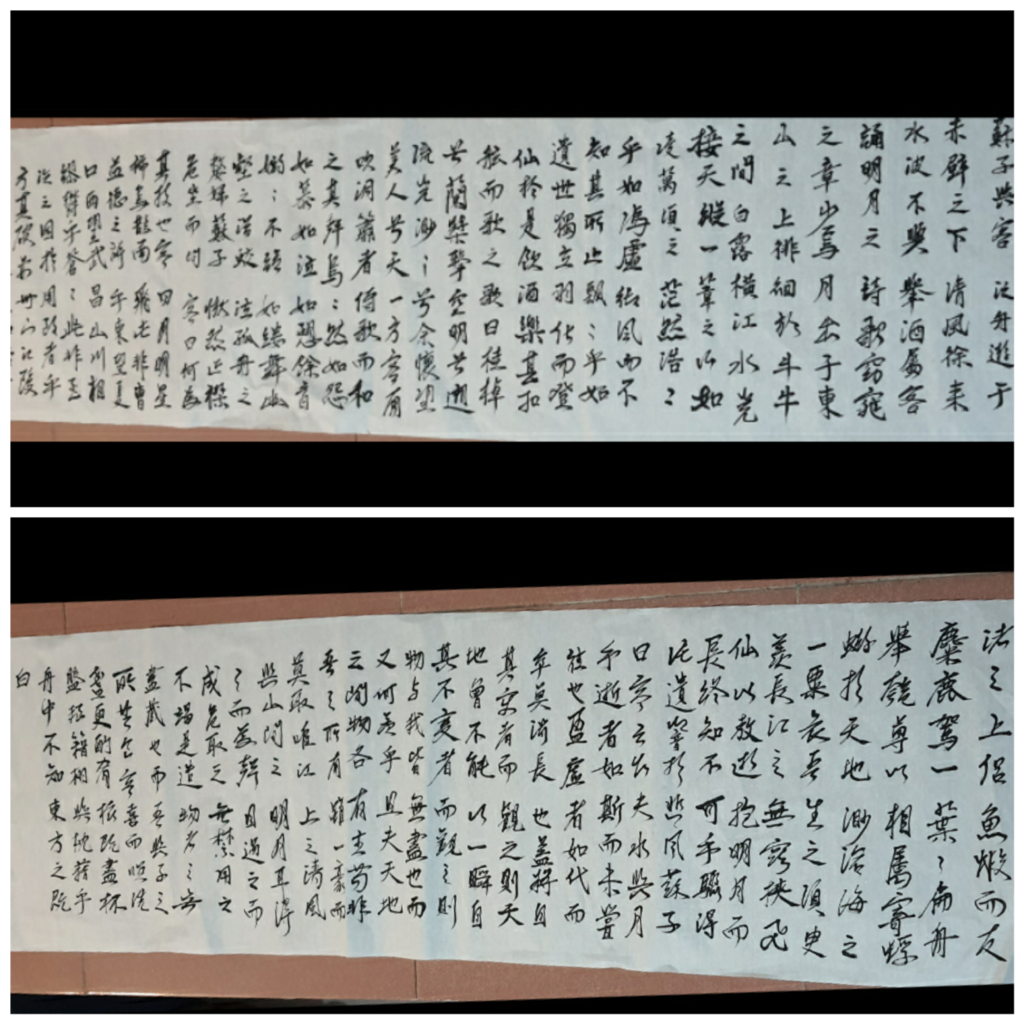 蘇子與客泛舟遊于
赤壁之下清風徐来
水波不興舉酒屬客
誦明月之詩歌窈窕
之章少焉月出于東
山之上徘徊於斗牛
之間白露橫江水光
接天縱一葦之所如
凌萬頃之茫然浩〻
乎如馮虛御風而不
知其所止飄〻乎如
遺世獨立羽化而登
仙於是飲酒樂甚扣
舷而歌之歌曰桂棹
兮蘭槳擊空明兮遡
流光渺〻兮余懷望
美人兮天一方客有
吹洞簫者倚歌而和
之其聲烏〻然如怨
如慕如泣如愬餘音
嫋〻不絕如縷舞幽
壑之潜蛟泣孤舟之
嫠婦蘇子愀然正襟
危坐而問客曰何為
其然也客曰月明星
稀烏鵲南飛此非曹
孟德之詩乎東望夏
口西望武昌山川相
繆鬱乎蒼〻此非孟
德之困於周郎者乎
方其破荊州下江陵
渚之上侶魚蝦而友
麋鹿駕一葉之扁舟
舉匏尊以相屬寄蜉
蝣於天地渺滄海之
一粟哀吾生之須臾
羨長江之無窮挾飛
仙以敖遊抱明月而
長終知不可乎驟得
託遺響於悲風蘇子
曰客亦知夫水與月
乎逝者如斯而未嘗
往也盈虛者如代而
卒莫消長也蓋將自
其變者而觀之則天
地曾不能以一瞬自
其不變者而觀之則
物与我皆無盡也而
又何羨乎且夫天地
之間物各有主苟非
吾之所有雖一毫而
莫取唯江上之清風
與山間之明月耳得
之而為聲目遇之而
成色取之無禁用之
不竭是造物者之無
盡藏也而吾與子之
所共食客喜而咲洗
盞更酌肴核既盡杯
盤狼籍相與枕藉乎
舟中不知東方之既
白